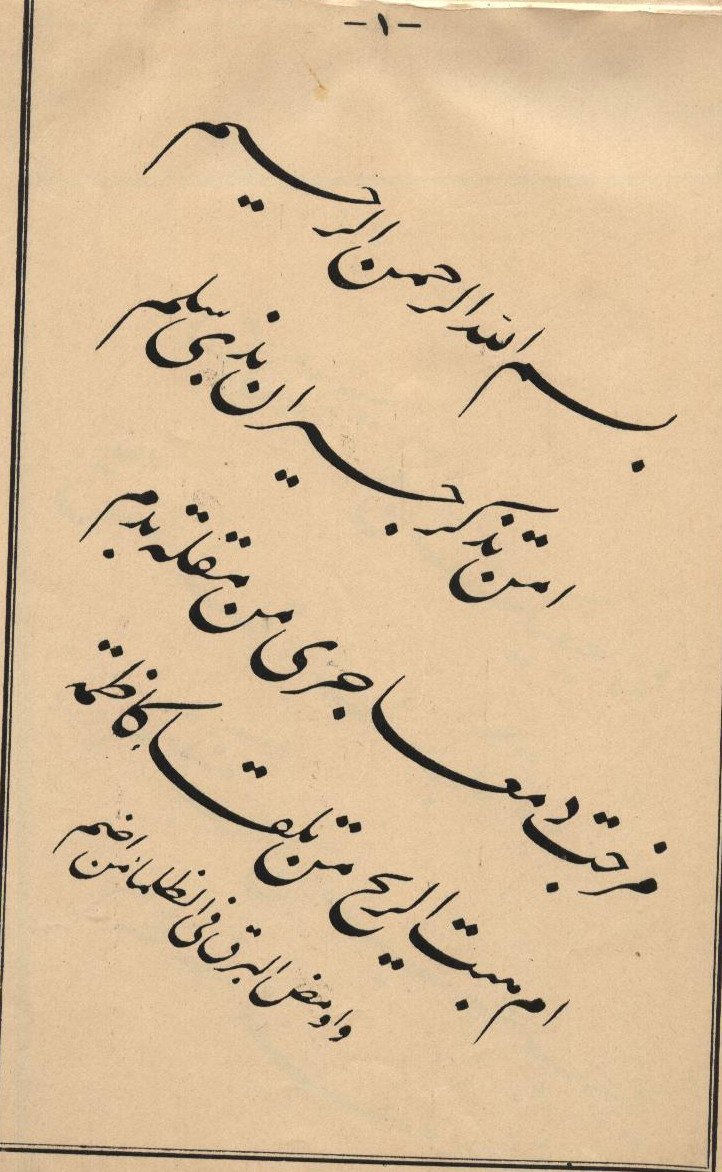 -١-
بسم الله الرحمن الرحيم
امن تذكر جيران بذى سلم
مزجت دمعا جرى من مقلة بدم
ام هبت الريح من تلقاء كاظمة
واومض البرق فى الظلماء من اضم